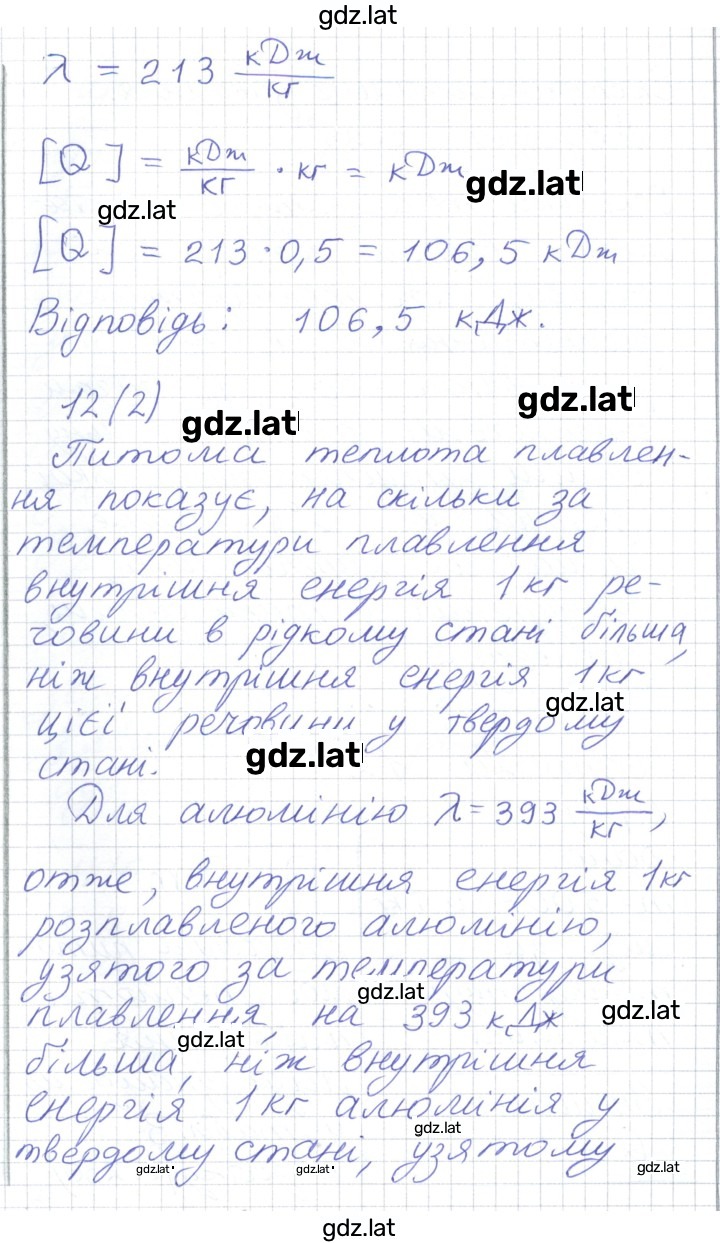 gdz.lat
λ = 213 кДж/кг
[Q] = кДж/кг · кг = кДж gdz.lat
gdz.lat
[Q] = 213 · 0,5 = 106,5 кДж
Відповідь: 106,5 кДж.
12(2) gdz.lat gdz.lat
Питома теплота плавлен-
ня показує, на скільки за
температури плавлення
внутрішня енергія 1 кг ре-
човини в рідкому стані більша,
ніж внутрішня енергія 1 кг
gdz.lat
цієї речовини у твердому
стані. gdz.lat
Для алюмінію λ = 393 кДж/кг,
отже, внутрішня енергія 1 кг
розплавленого алюмінію,
узятого за температури
gdz.lat
плавлення, на 393 кДж gdz.lat
gdz.lat
більша, ніж внутрішня
енергія 1 кг алюмінія у
gdz.lat
твердому стані, узятому
gdz.lat gdz.lat gdz.lat
gdz.lat